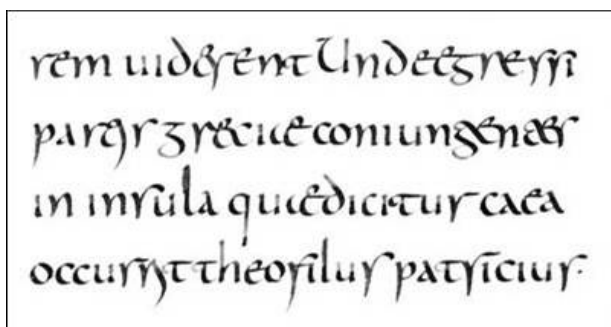 rem uiderent Undeegressi
partes greciae coniungentes
in insula quaedicitur caea
theofilus patricius·